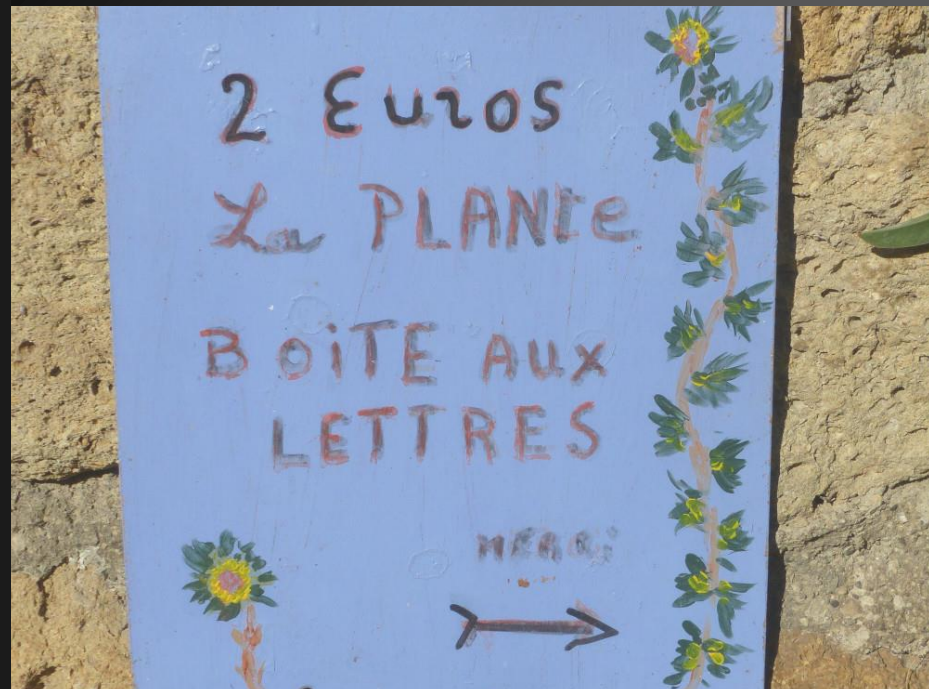 2 Euros
La PLANte
BOiTE AUX
LETTRES
MERCi